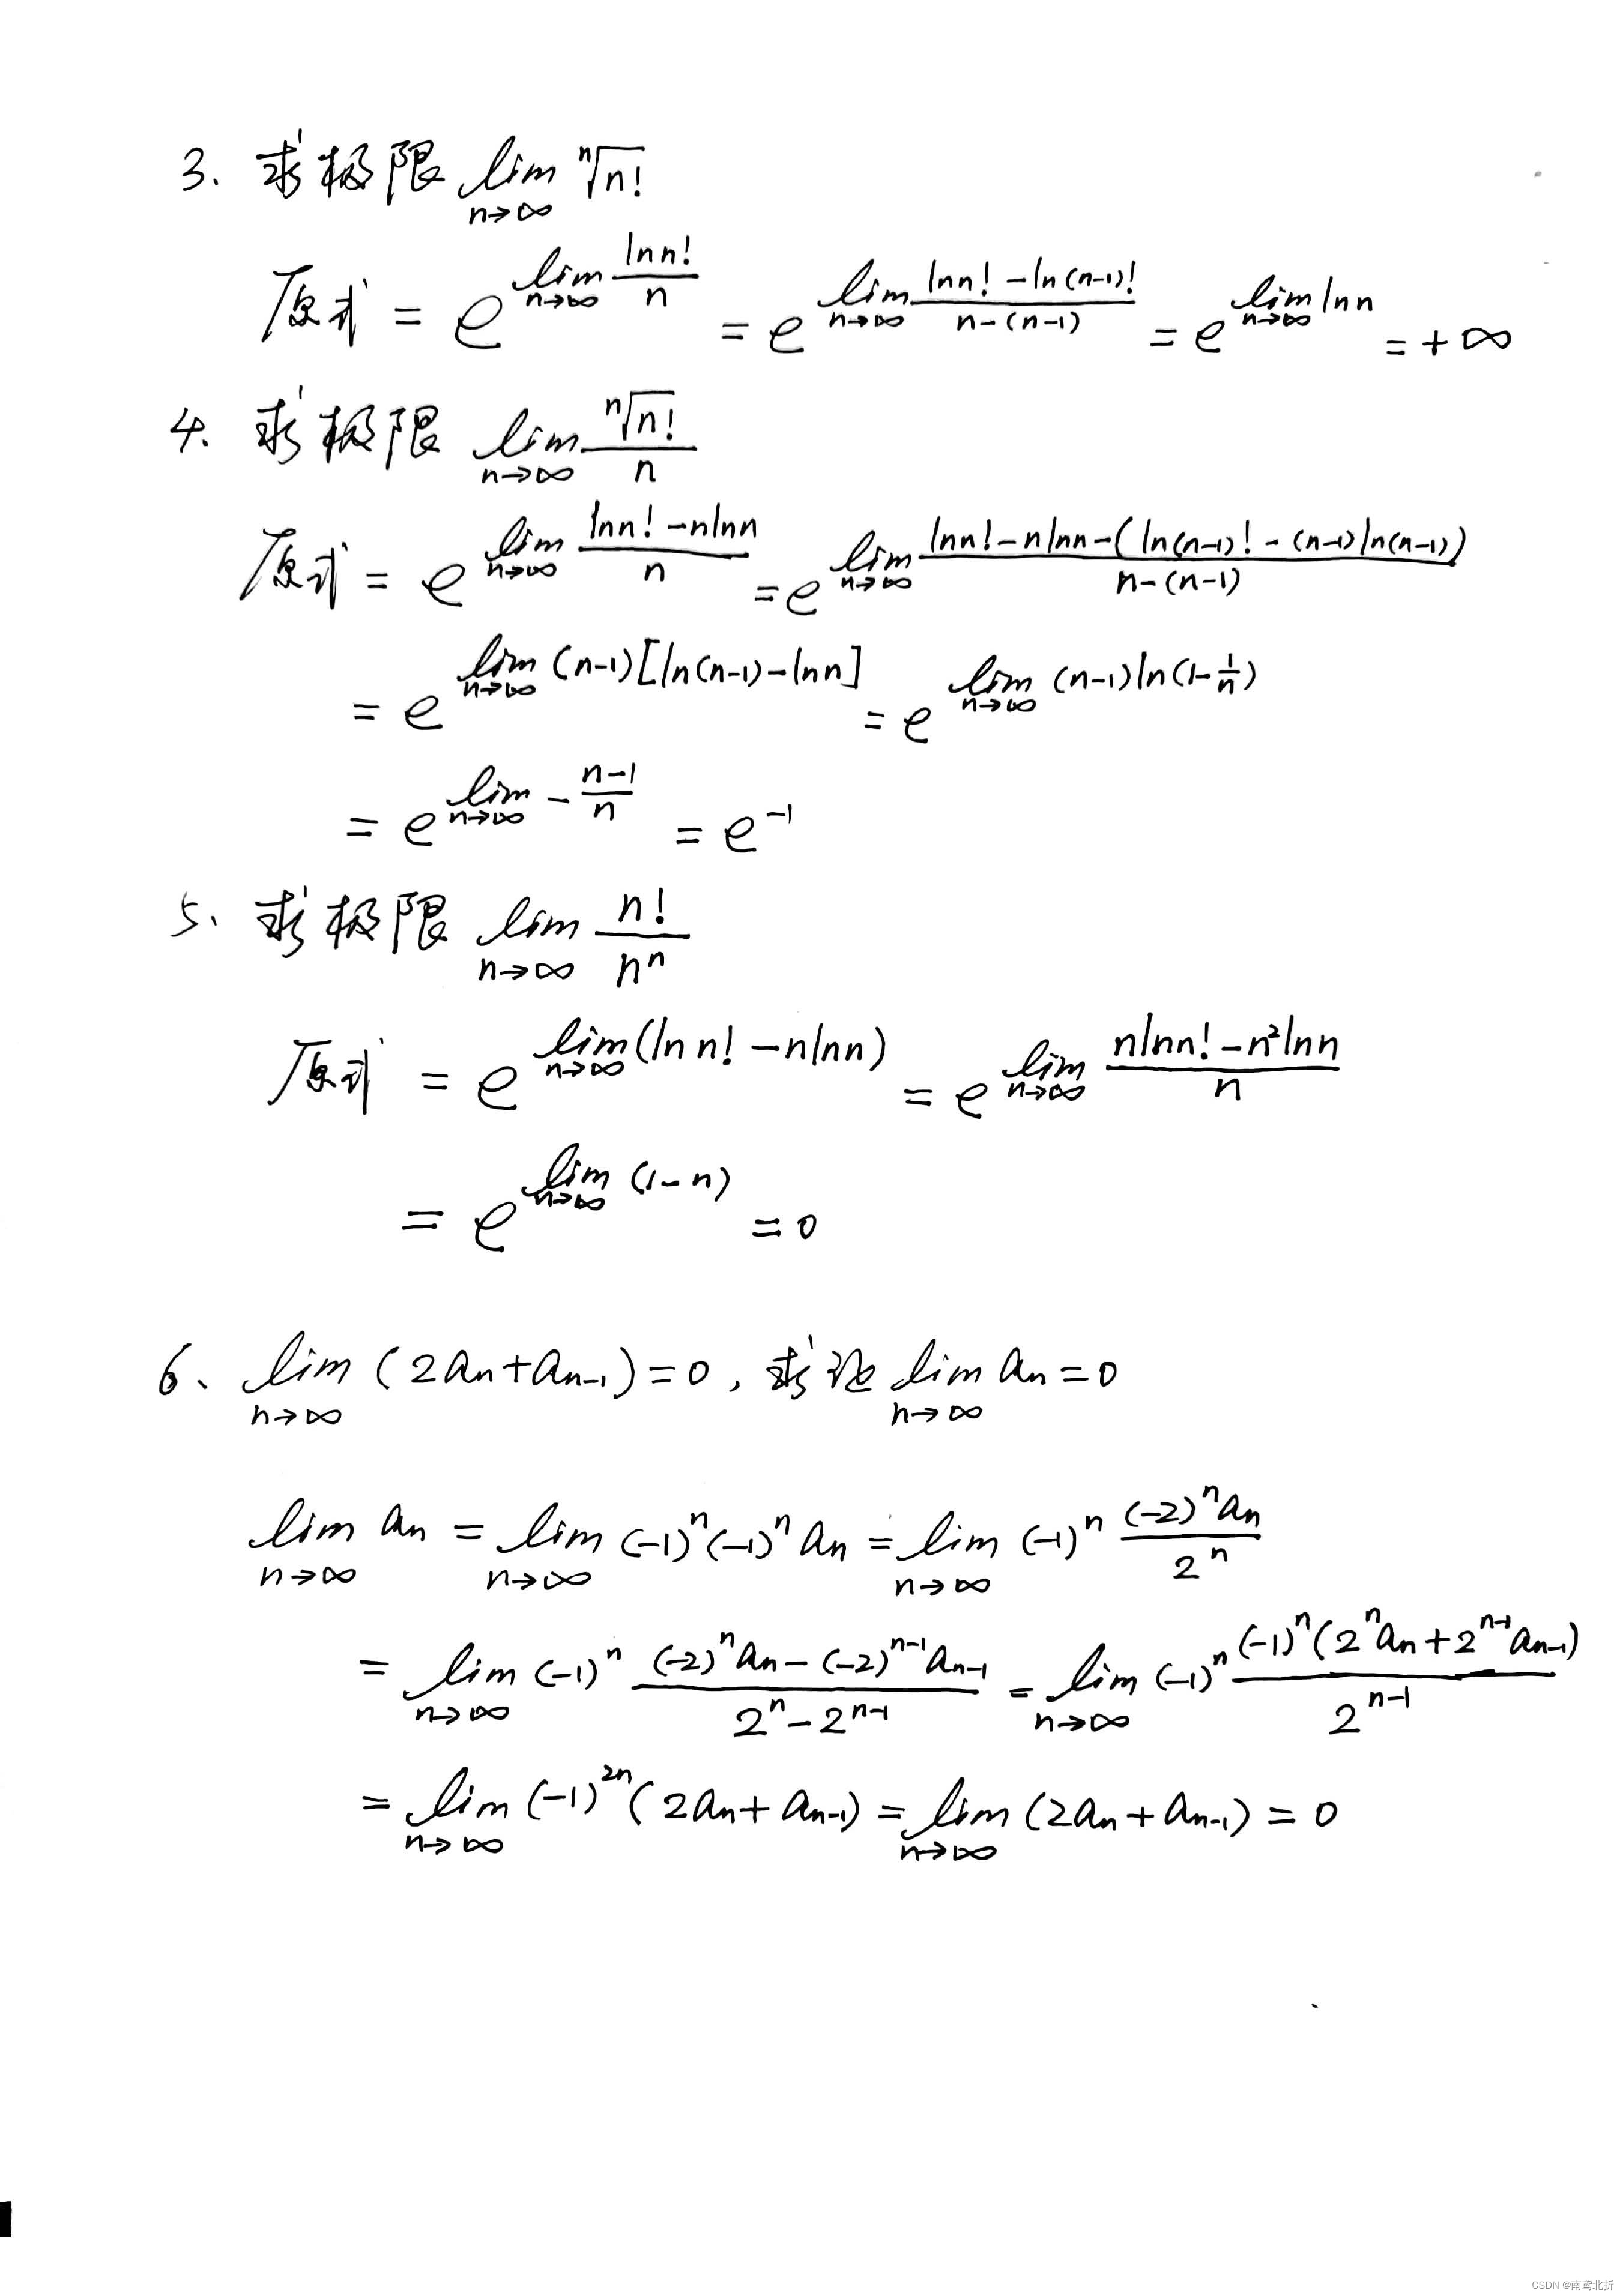 3、求极限 lim_{n→∞} ⁿ√n!
原式 = e^{lim_{n→∞} \frac{lnn!}{n}} = e^{lim_{n→∞} \frac{lnn!-ln(n-1)!}{n-(n-1)}} = e^{lim_{n→∞} lnn} = +∞
4、求极限 lim_{n→∞} \frac{ⁿ√n!}{n}
原式 = e^{lim_{n→∞} \frac{lnn!-nlnn}{n}} = e^{lim_{n→∞} \frac{lnn!-nlnn-(ln(n-1)!-(n-1)ln(n-1))}{n-(n-1)}}
= e^{lim_{n→∞} (n-1)[ln(n-1)-lnn]} = e^{lim_{n→∞} (n-1)ln(1-\frac{1}{n})}
= e^{lim_{n→∞} -\frac{n-1}{n}} = e^{-1}
5、求极限 lim_{n→∞} \frac{n!}{n^n}
原式 = e^{lim_{n→∞} (ln n!-nlnn)} = e^{lim_{n→∞} \frac{nlnn!-n²lnn}{n}}
= e^{lim_{n→∞} (1-n)} = 0
6、lim_{n→∞} (2a_n+a_{n-1})=0，求证 lim_{n→∞} a_n=0
lim_{n→∞} a_n = lim_{n→∞} (-1)^n(-1)^n a_n = lim_{n→∞} (-1)^n \frac{(-2)^n a_n}{2^n}
= lim_{n→∞} (-1)^n \frac{(-2)^n a_n-(-2)^{n-1}a_{n-1}}{2^n-2^{n-1}} = lim_{n→∞} (-1)^n \frac{(-1)^n(2^n a_n+2^{n-1}a_{n-1})}{2^{n-1}}
= lim_{n→∞} (-1)^{2n}(2a_n+a_{n-1}) = lim_{n→∞} (2a_n+a_{n-1}) = 0
CSDN @南鸢北折